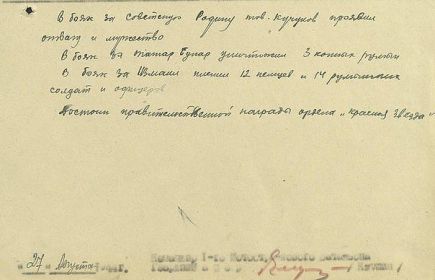 В боях за советскую Родину тов. Кучуков проявил
отвагу и мужество
В боях за Татар Бунар уничтожил 3 конных румын
В боях за Измаил пленил 12 немцев и 14 румынских
солдат и офицеров
Достоин правительственной награды ордена „Красная Звезда"
"27" Августа г. 1-го батальона